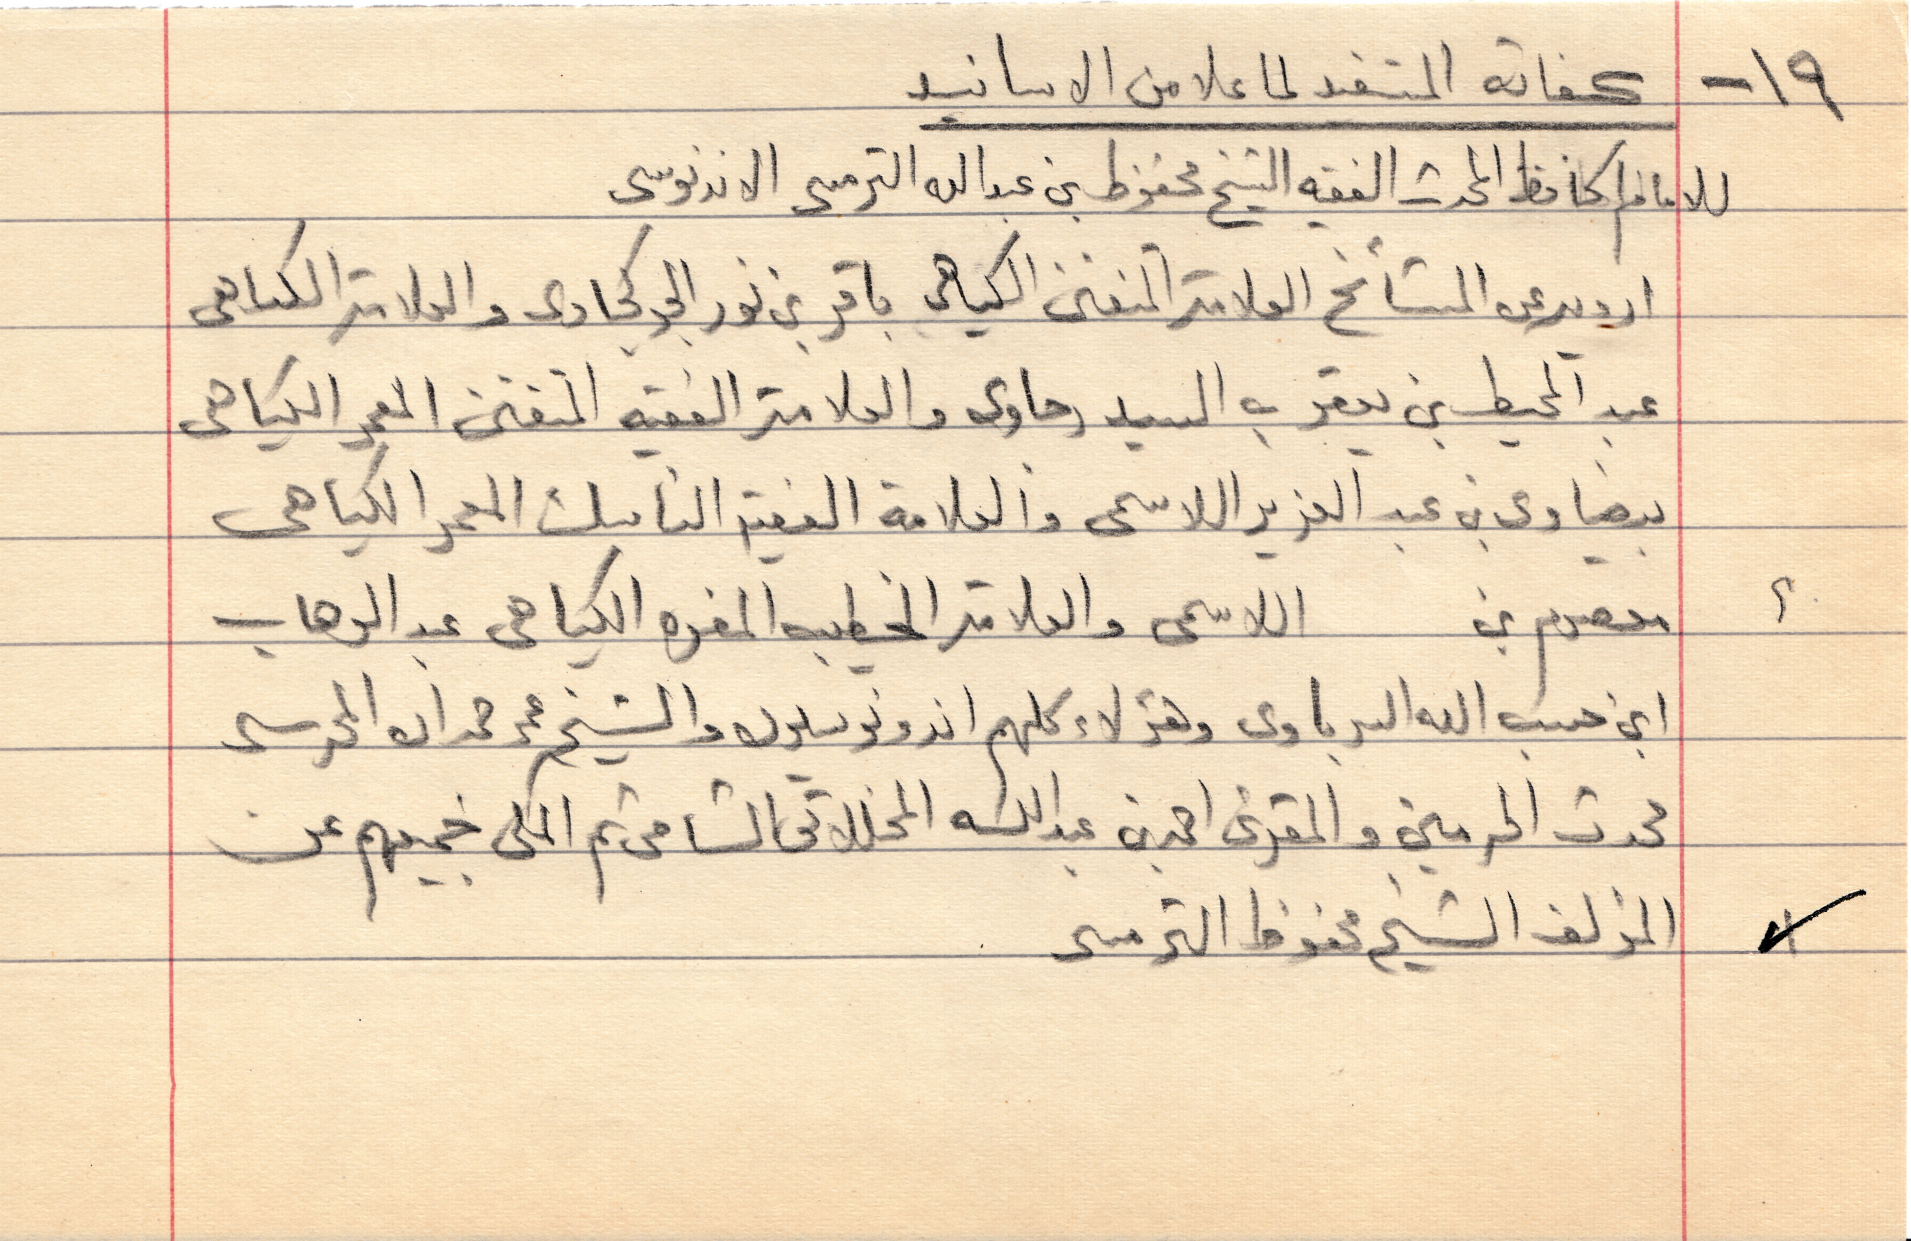 ١٩- كفاية المستفيد لما علا من الاسانيد
للامام الحافظ المحدث الفقيه الشيخ محفوظ بن عبدالله الترمسى الاندنوسى
ارويه عن المشائخ العلامة المتفنن الكياهى باقر بن نور الجوكجاوى والعلامة الكياهى
عبد المحيط بن يعقوب السيدرجاوى والعلامة الفقيه المتفنن المعمر الكياهى
بيضاوى بن عبد العزيز اللاسمى والعلامة الفقيه الناسك المعمر الكياهى
؟ معصوم بن اللاسمى والعلامة الخطيب المفوه الكياهى عبد الوهاب
ابن حسب الله السرباوى وهؤلاء كلهم اندونوسيون والشيخ عمر حمدان المحرسى
محدث الحرمين والمقرئ احمد بن عبدالله المخللاتى الشامى ثم المكى جميعهم عن
المؤلف الشيخ محفوظ الترمسى